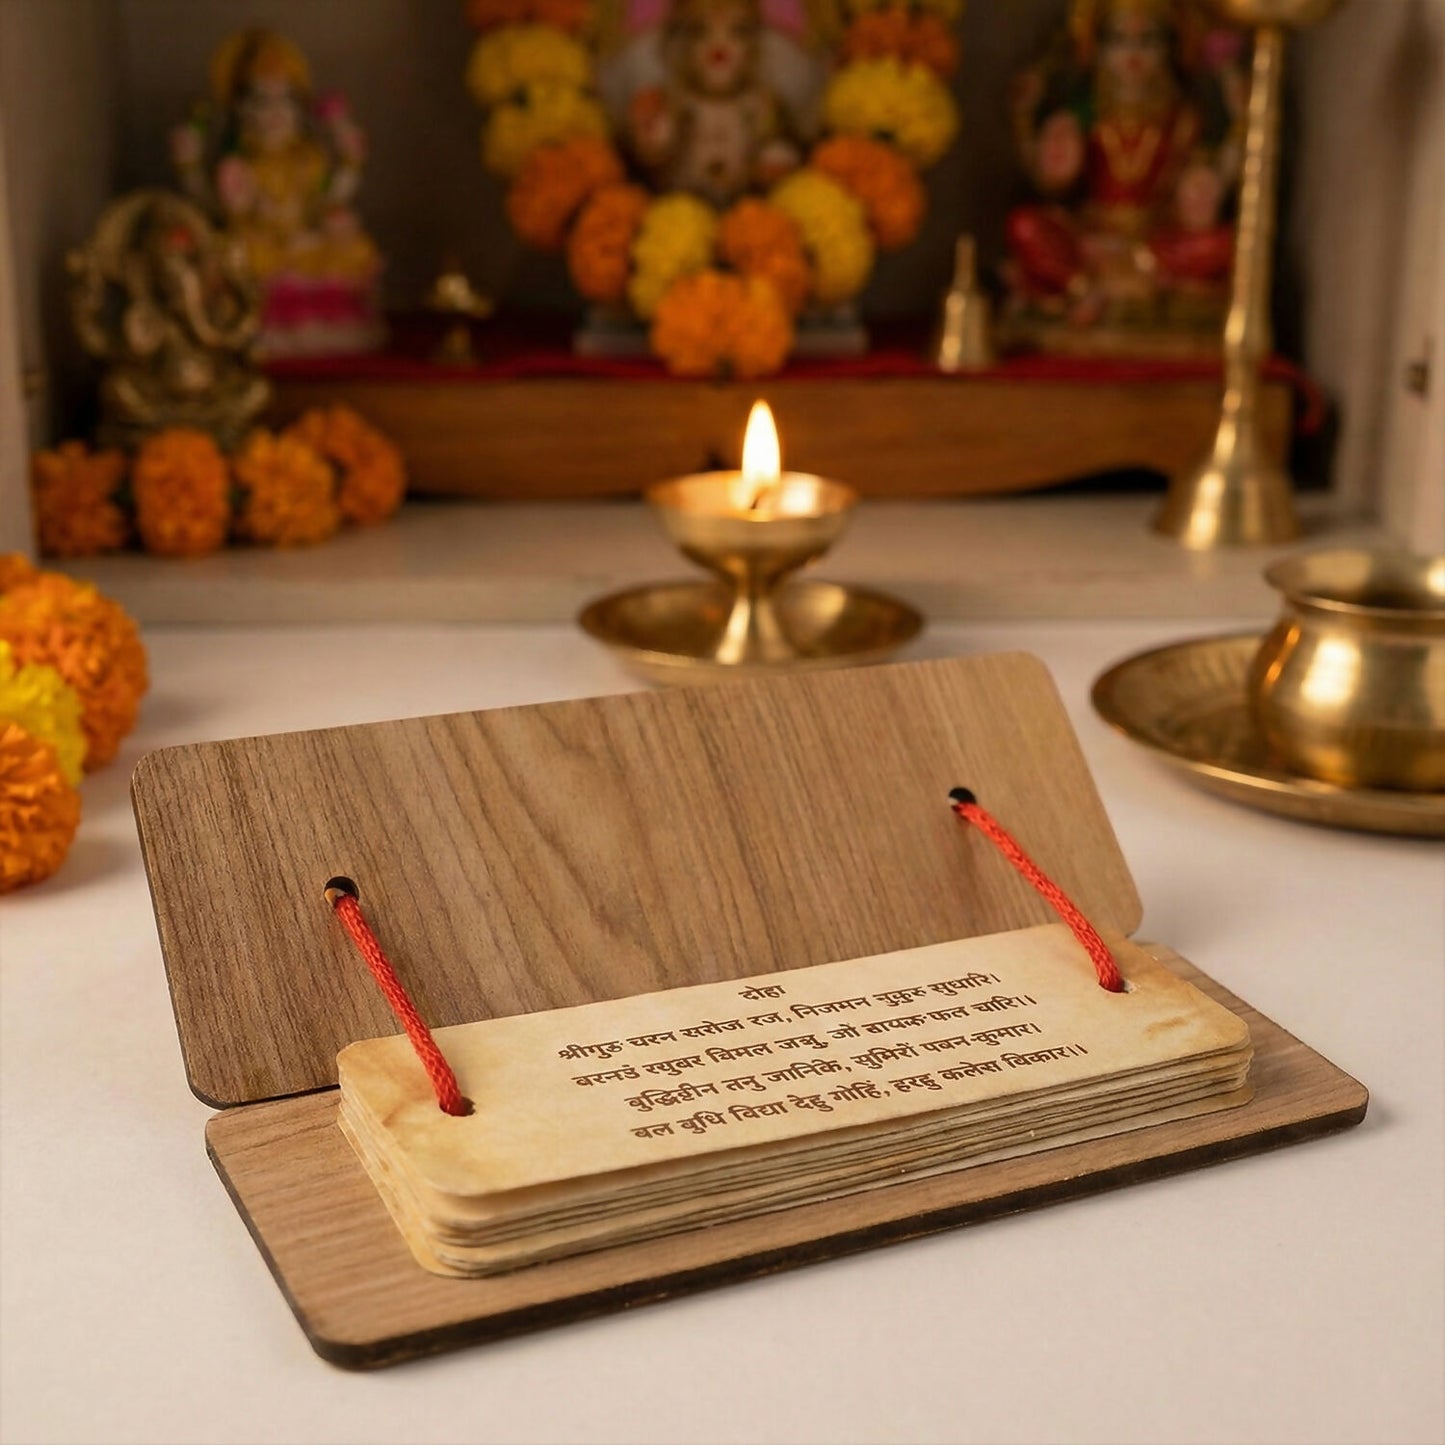 दोहा
श्रीगुरु चरन सरोज रज, निजमन मुकुरु सुधारि।
बरनउं रघुबर बिमल जसु, जो दायक फल चारि।।
बुद्धिहीन तनु जानिके, सुमिरों पवन-कुमार।
बल बुधि विद्या देहु मोहिं, हरहु कलेश विकार।।